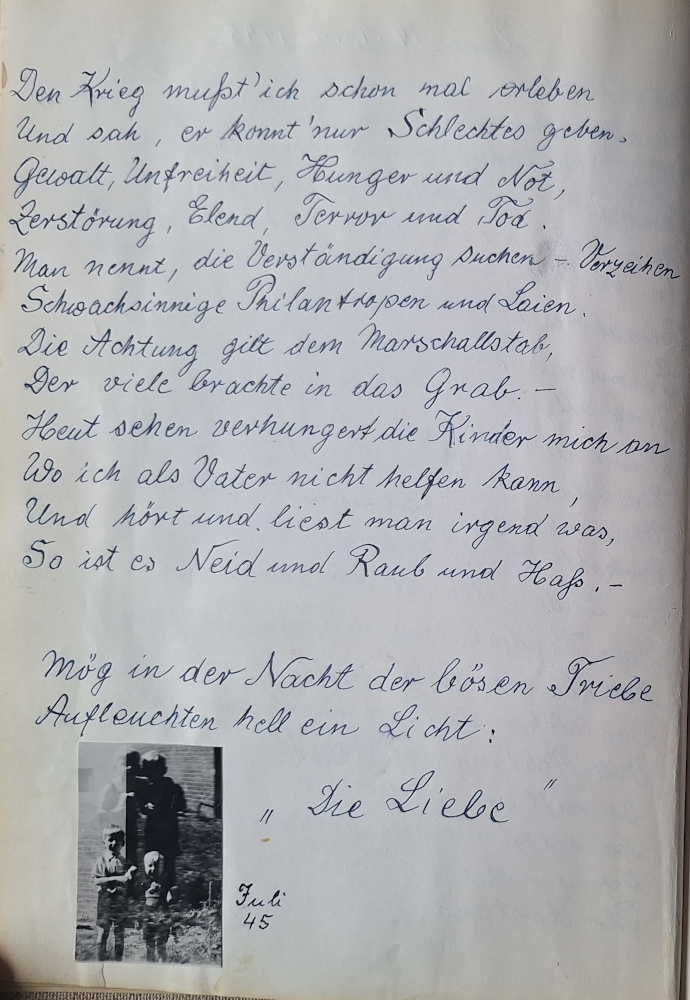 Den Krieg mußt' ich schon mal erleben
Und sah, er konnt' nur Schlechtes geben.
Gewalt, Unfreiheit, Hunger und Not,
Zerstörung, Elend, Terror und Tod.
Man nennt, die Verständigung suchen - Verzeihen
Schwachsinnige Philantropen und Laien.
Die Achtung gilt dem Marschallstab,
Der viele brachte in das Grab. -
Heut sehen verhungert die Kinder mich an
Wo ich als Vater nicht helfen kann,
Und hört und liest man irgend was,
So ist es Neid und Raub und Haß. -
Mög in der Nacht der bösen Triebe
Aufleuchten hell ein Licht:
„ Die Liebe "
Juli
45